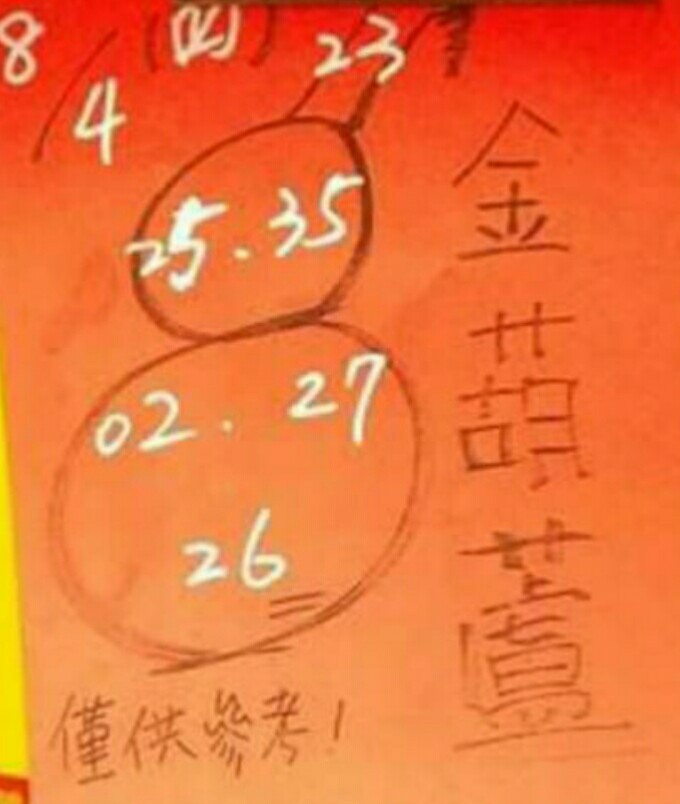 8/4 (四)
23
25.35
02.27
26
金葫蘆
僅供參考!